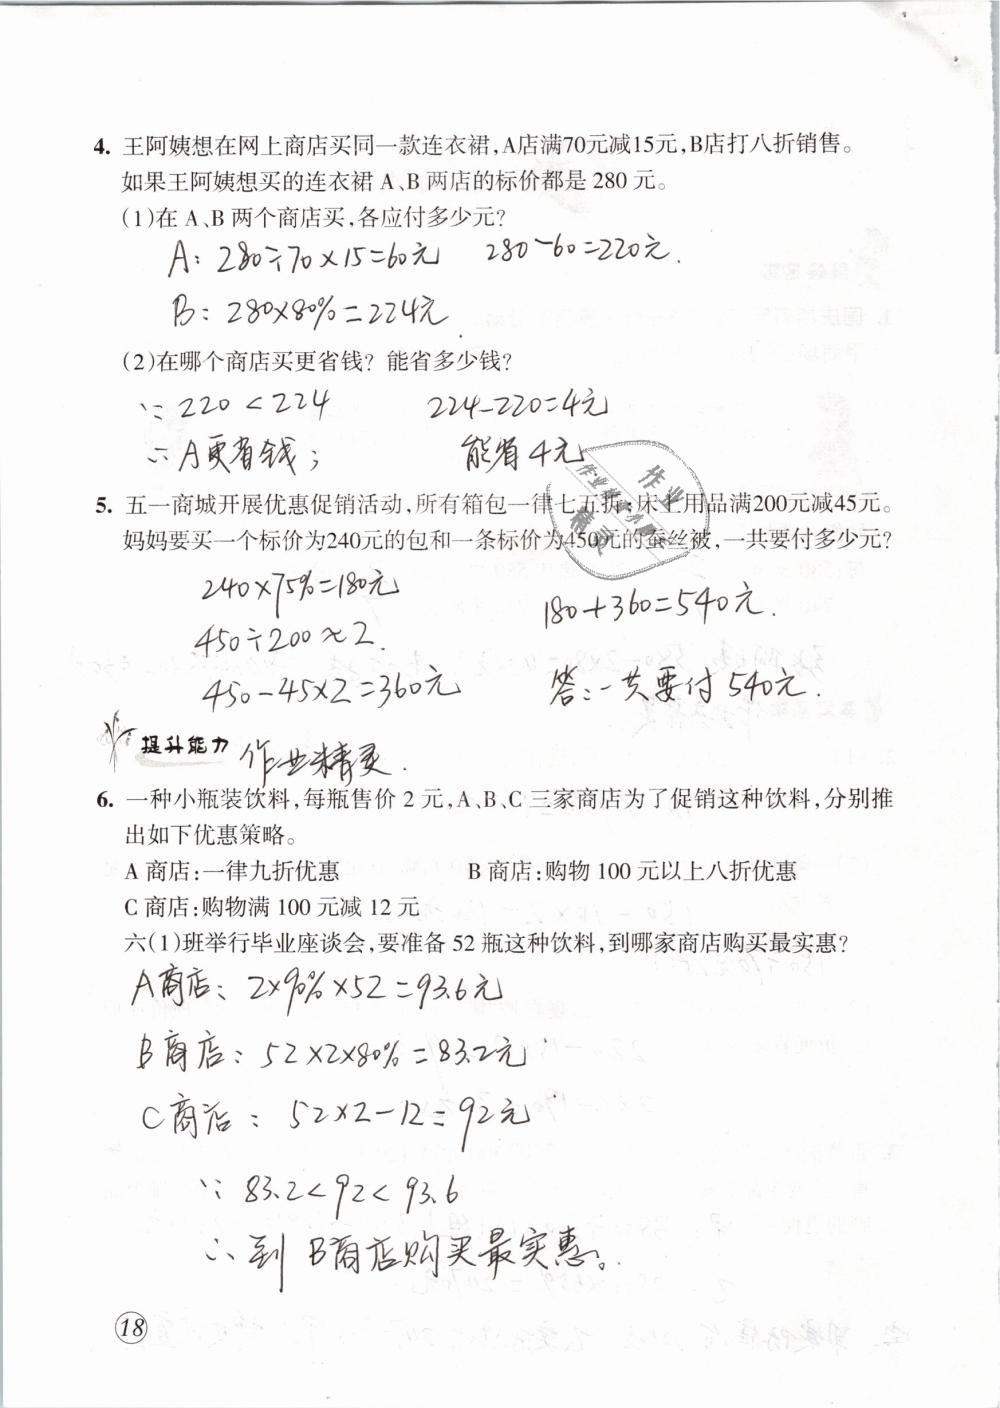 4. 王阿姨想在网上商店买同一款连衣裙,A店满70元减15元,B店打八折销售。
如果王阿姨想买的连衣裙 A、B 两店的标价都是 280 元。
(1)在 A、B 两个商店买,各应付多少元?
A: 280÷70×15=60元 280-60=220元.
B: 280×80%=224元
(2)在哪个商店买更省钱? 能省多少钱?
∵ 220 < 224 224-220=4元
∴ A更省钱; 能省4元
5. 五一商城开展优惠促销活动,所有箱包一律七五折;床上用品满200元减45元。
妈妈要买一个标价为240元的包和一条标价为450元的蚕丝被,一共要付多少元?
240×75%=180元 180+360=540元.
450÷200≈2.
450-45×2=360元 答:一共要付540元.
提升能力 作业精灵.
6. 一种小瓶装饮料,每瓶售价 2 元,A、B、C 三家商店为了促销这种饮料,分别推
出如下优惠策略。
A 商店:一律九折优惠 B 商店:购物 100 元以上八折优惠
C 商店:购物满 100 元减 12 元
六(1)班举行毕业座谈会,要准备 52 瓶这种饮料,到哪家商店购买最实惠?
A商店: 2×90%×52=93.6元
B商店: 52×2×80%=83.2元
C商店: 52×2-12=92元
∵ 83.2<92<93.6
∴ 到B商店购买最实惠。
18